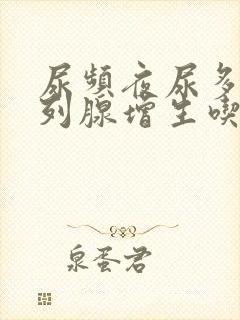 尿頻夜尿多
列腺增生喫
泉蛋君